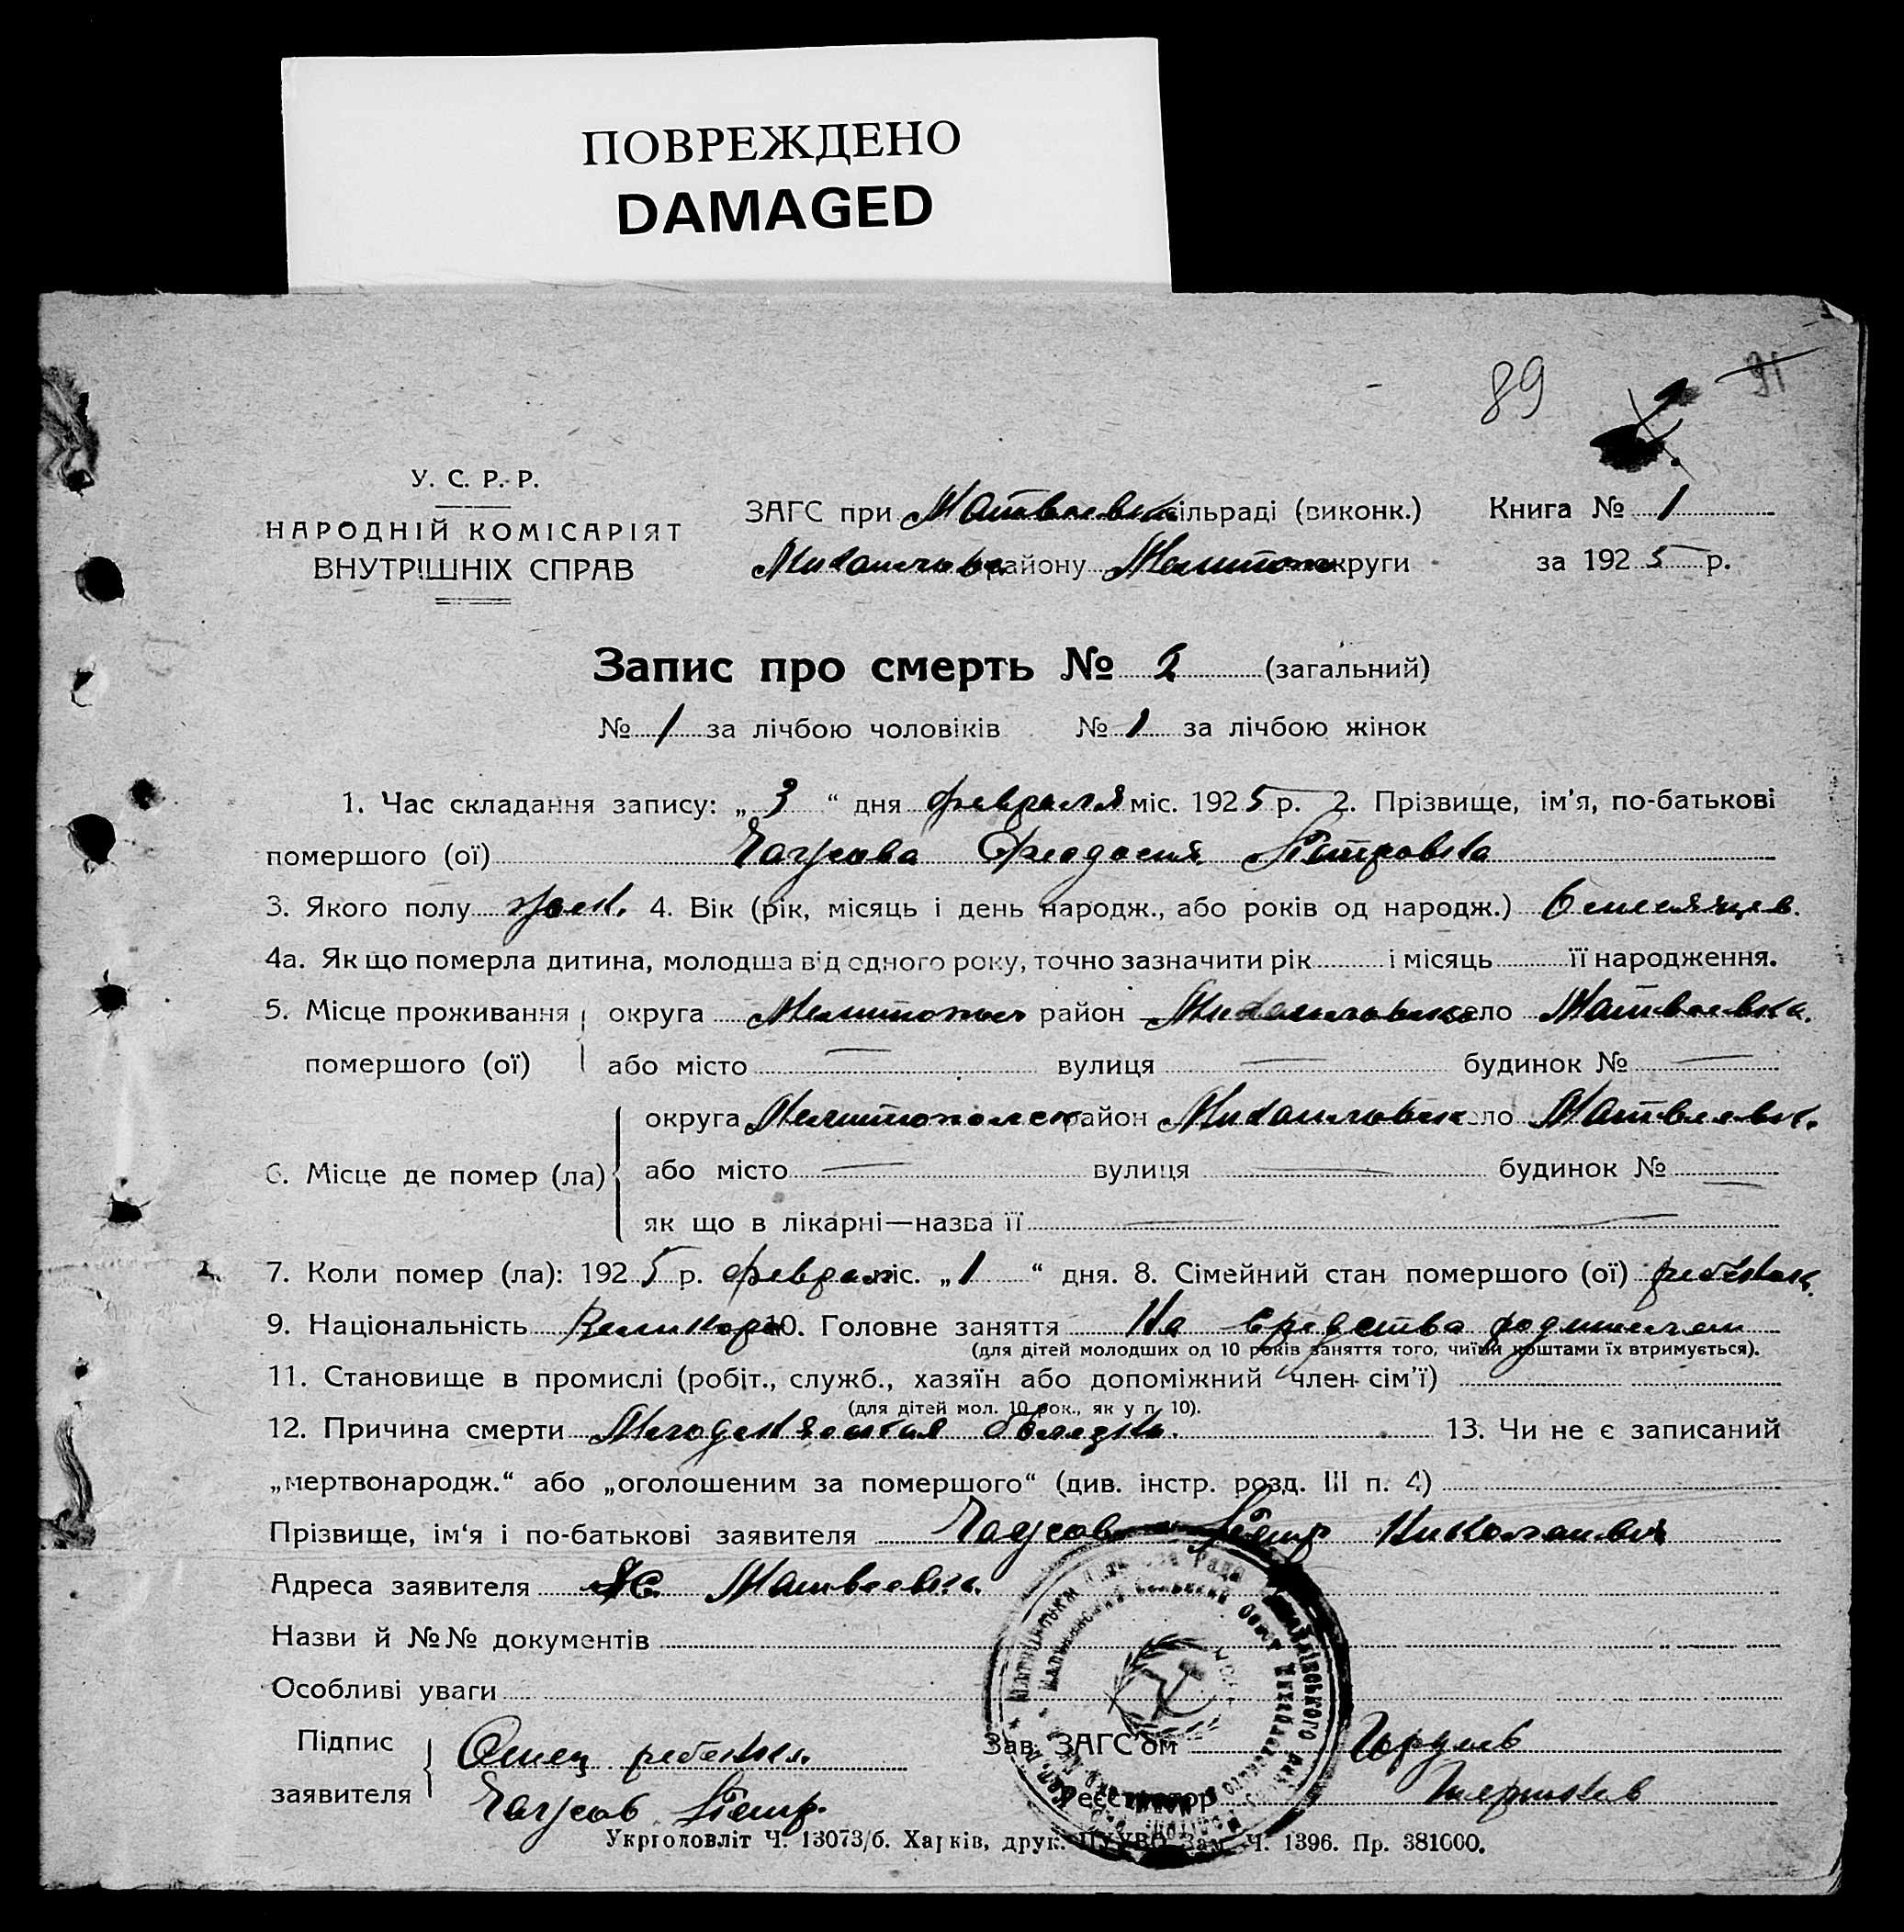 ПОВРЕЖДЕНО
DAMAGED
89 91
У. С. Р. Р.
НАРОДНІЙ КОМІСАРІЯТ
ВНУТРІШНІХ СПРАВ
ЗАГС при Матвеевк сільраді (виконк.) Книга № 1
Михайловс району Мелитоп округи за 1925 р.
Запис про смерть № 2 (загальний)
№ 1 за лічбою чоловіків № 1 за лічбою жінок
1. Час складання запису: „3“ дня февраля міс. 1925 р. 2. Прізвище, ім’я, по-батькові
помершого (ої) Чаусова Феодосия Петровна
3. Якого полу жен. 4. Вік (рік, місяць і день народж., або років од народж.) 6 месяцев.
4а. Як що померла дитина, молодша від одного року, точно зазначити рік і місяць її народження.
5. Місце проживання помершого (ої) округа Мелитопол район Михайловск село Матвеевка.
або місто — вулиця — будинок № —
6. Місце де помер (ла) округа Мелитопольск район Михайловск село Матвеевк.
або місто — вулиця — будинок № —
як що в лікарні—назва її —
7. Коли помер (ла): 1925 р. феврал міс. „1“ дня. 8. Сімейний стан помершого (ої) ребенок.
9. Національність Великорос 10. Головне заняття На средства родителей
(для дітей молодших од 10 років заняття того, чиїми коштами їх втримується).
11. Становище в промислі (робіт., служб., хазяїн або допоміжний член сім’ї)
(для дітей мол. 10 рок., як у п. 10).
12. Причина смерти болезнь. 13. Чи не є записаний
„мертвонародж.“ або „оголошеним за помершого“ (див. інстр. розд. III п. 4)
Прізвище, ім‘я і по-батькові заявителя Чаусов Петр Николаевич
Адреса заявителя с. Матвеевка.
Назви й №№ документів
Особливі уваги
Підпис заявителя Отец ребенка.
Чаусов Петр.
Зав. ЗАГС’ом
Реєстратор
Укрголовліт Ч. 13073/б. Харків, друк. ЦУУВО Зам. Ч. 1396. Пр. 381000.